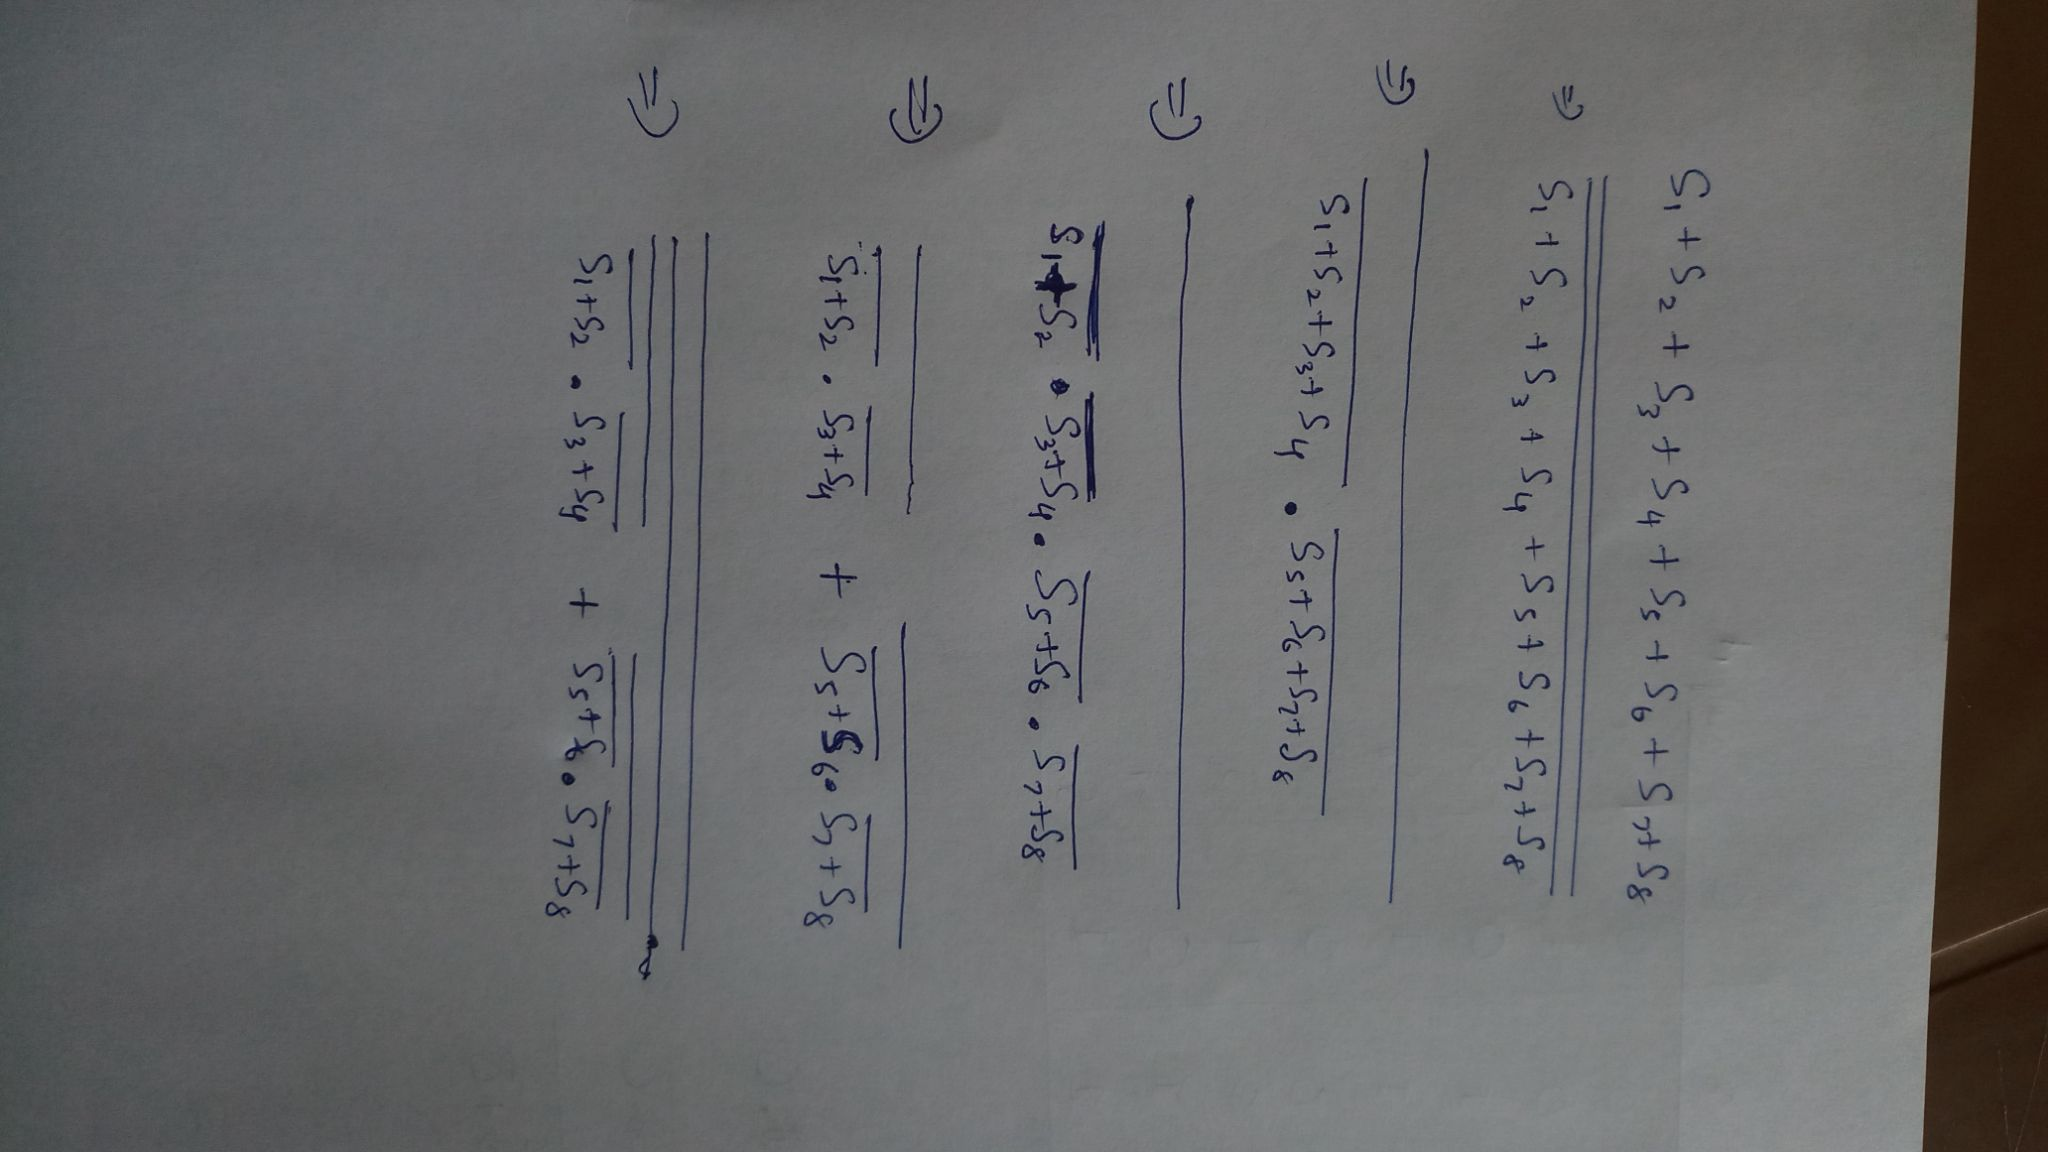 S₁ + S₂ + S₃ + S₄ + S₅ + S₆ + S₇ + S₈
⇒ S₁ + S₂ + S₃ + S₄ + S₅ + S₆ + S₇ + S₈
⇒ S₁+S₂+S₃+S₄ • S₅+S₆+S₇+S₈
⇒ S₁+S₂ • S₃+S₄ • S₅+S₆ • S₇+S₈
⇒ S₁+S₂ • S₃+S₄ + S₅+S₆ • S₇+S₈
⇒ S₁+S₂ • S₃+S₄ + S₅+S₆ • S₇+S₈